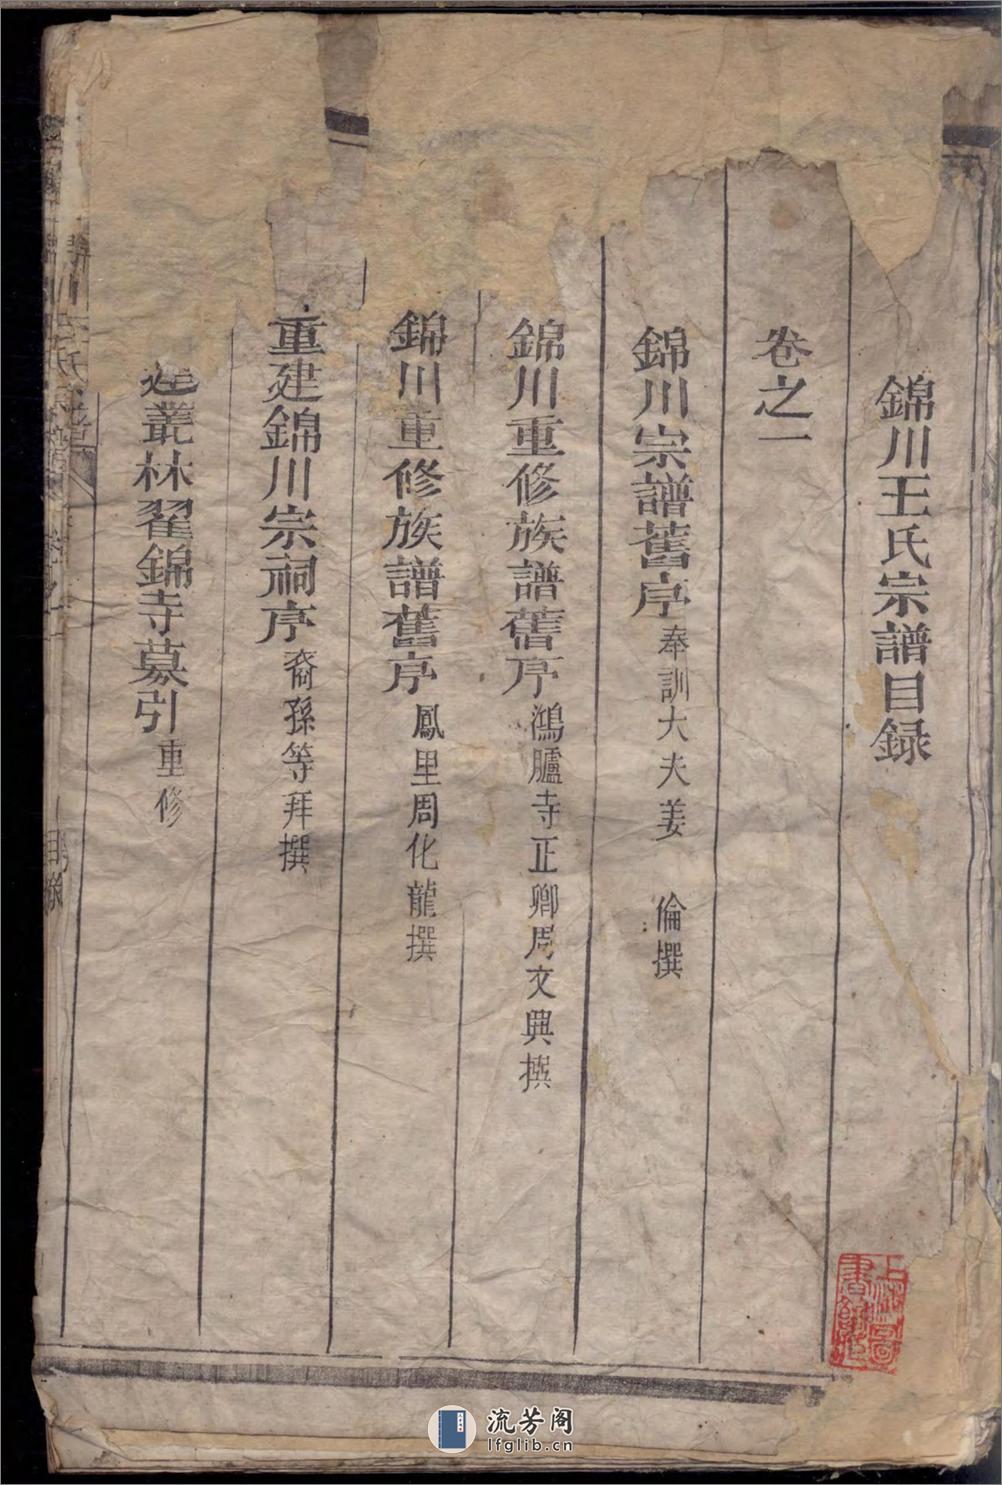 錦川王氏宗譜目録
卷之一
錦川宗譜舊序 奉訓大夫姜 倫撰
錦川重修族譜舊序 鴻臚寺正卿周文興撰
錦川重修族譜舊序 鳳里周化龍撰
重建錦川宗祠序 裔孫等拜撰
建叢林翟錦寺募引 重修
流芳阁
lfglib.cn